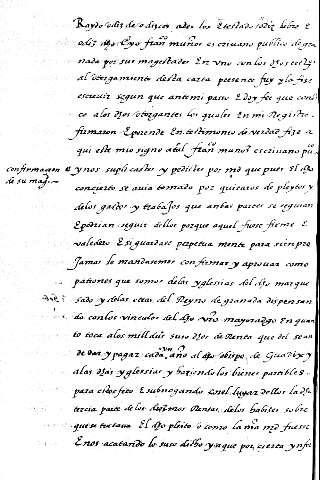 e dixo Eyo fran° muños escriuano publico de gra
nada por sus magestades En vno con los dichos testigos
al otorgamiento desta carta presente fuy y lo fize
escreuir segun que ante mi passo E doy fee que conoz
co alos dichos otorgantes los quales En mi Registro
firmaron E porende En testimonio de verdad fize a
qui este mio signo atal fran° muños escriuano pu°
confirmacion
de su mag.
y nos suplicastes y pedistes por md que pues El dicho
concierto se auia tomado por quitaros de pleytos y
delos gastos y trabajos que anbas partes se seguian
E podrian seguir dellos porque aquel fuese firme E
valedero E se guardase perpetua mente para sienpre
Jamas le mandasemos confirmar y aprouar como
patrones que somos delas yglesias del dicho marque
sado y delas otras del Reyno de granada dispensan
do conlos vinculos del dicho vro mayoradgo En quan
to toca alos mill ducados de Renta que del sean
de dar y pagar cada vn año al dicho obispo de Guadix y
alas dichas yglesias y haziendo los bienes partibles
para el dicho efeto E subrrogando enel lugar dellos la dicha
tercia parte de los diezmos Rentas delos habices sobre
que se trataua El dicho pleito o como la nra md fuese
E nos acatando lo suso dicho y a que por cierta ynfor